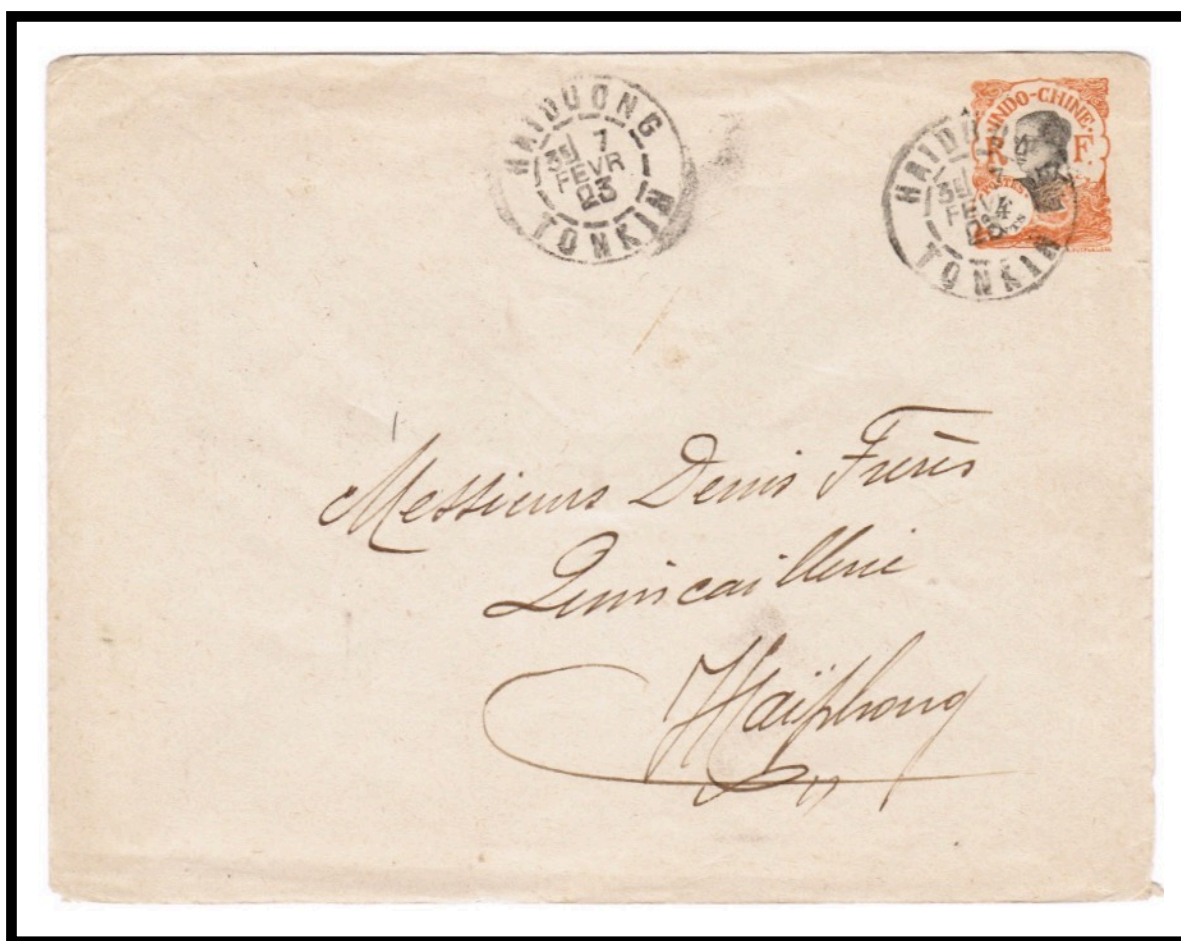 HAIDUONG
7
FEVR
23
TONKIN
INDO-CHINE
R F
POSTES
4
HAIDUONG
FEVR
23
TONKIN
Messieurs Denis Frères
Quincaillerie
Haïphong